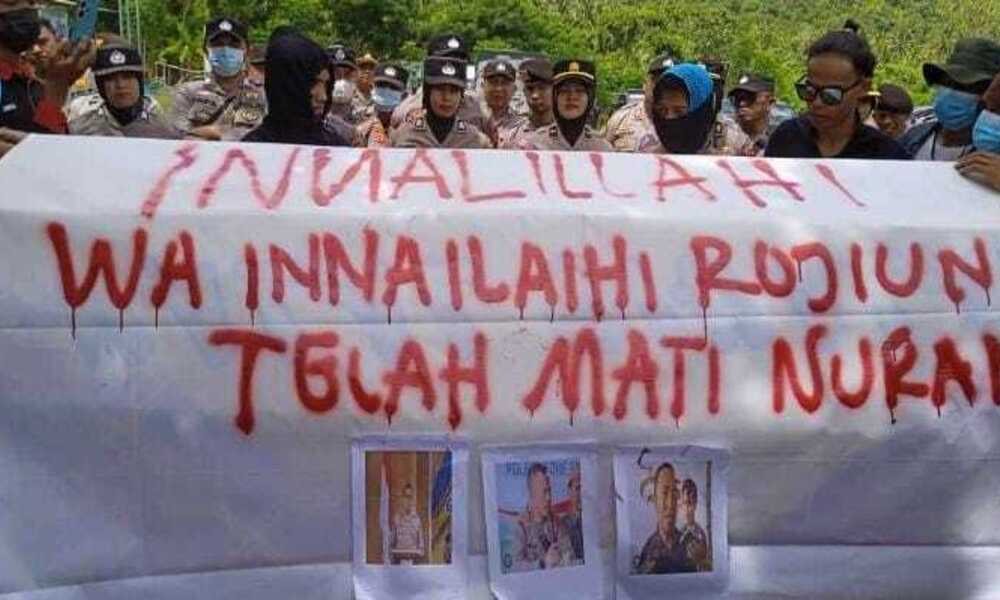 INNALILLAHI
WA INNAILAIHI ROJIUN
TELAH MATI NURAN